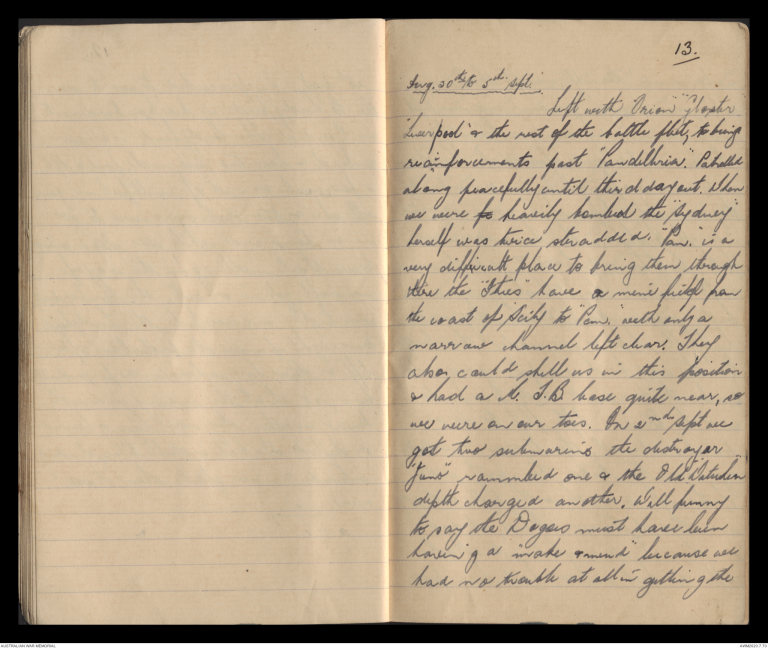 13.
Aug. 30th to 5th Sept.
Left with "Orion" "Gloster"
"Liverpool" & the rest of the battle fleet, to bring
reainforcements past "Pandelleria". Patrolled
along peacefully until third day out. When
we were heavily bombed the "Sydney"
herself was twice straddled. "Pan." is a
very difficult place to bring them through
here the "Ities" have a mine field from
the coast of Scily to "Pan." with only a
narrow channel left clear. They
also could shell us in this position
& had a M.T.B base quite near, so
we were on our toes. On 2nd Sept we
got two submarines the destroyer
"Juno" rammbed one & the Old
depth charged another. Well funny
to say the Dagoes must have been
having a "make & mend" because we
had no trouble at all in getting the
AUSTRALIAN WAR MEMORIAL